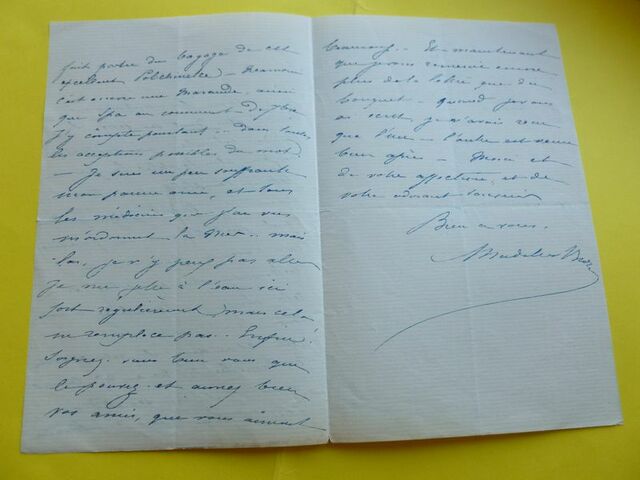 fait partie du bagage de cet
excellent Polichinelle
c'est encore une maraude, ainsi
que Spa au comment
J'y compte pourtant - dans toutes
les acceptions possibles du mot.
- Je suis un peu souffrante
mon pauvre ami, et tous
les médecins que j'ai vus
m'ordonnent la mer - mais
là, je n'y peux pas aller
je me jette à l'eau ici
fort régulièrement, mais cela
ne remplace pas. Enfin!
Soignez-vous bien vous que
le pouvez et aimez bien
vos amis, que vous aiment
- Et maintenant
que je vous remercie encore
plus de la lettre que du
bouquet - quand je vous
ai écrit, je n'avais reçu
que l'une - l'autre est venue
bien après - Merci et
de votre affection, et de
votre
Bien à vous.
Madeleine